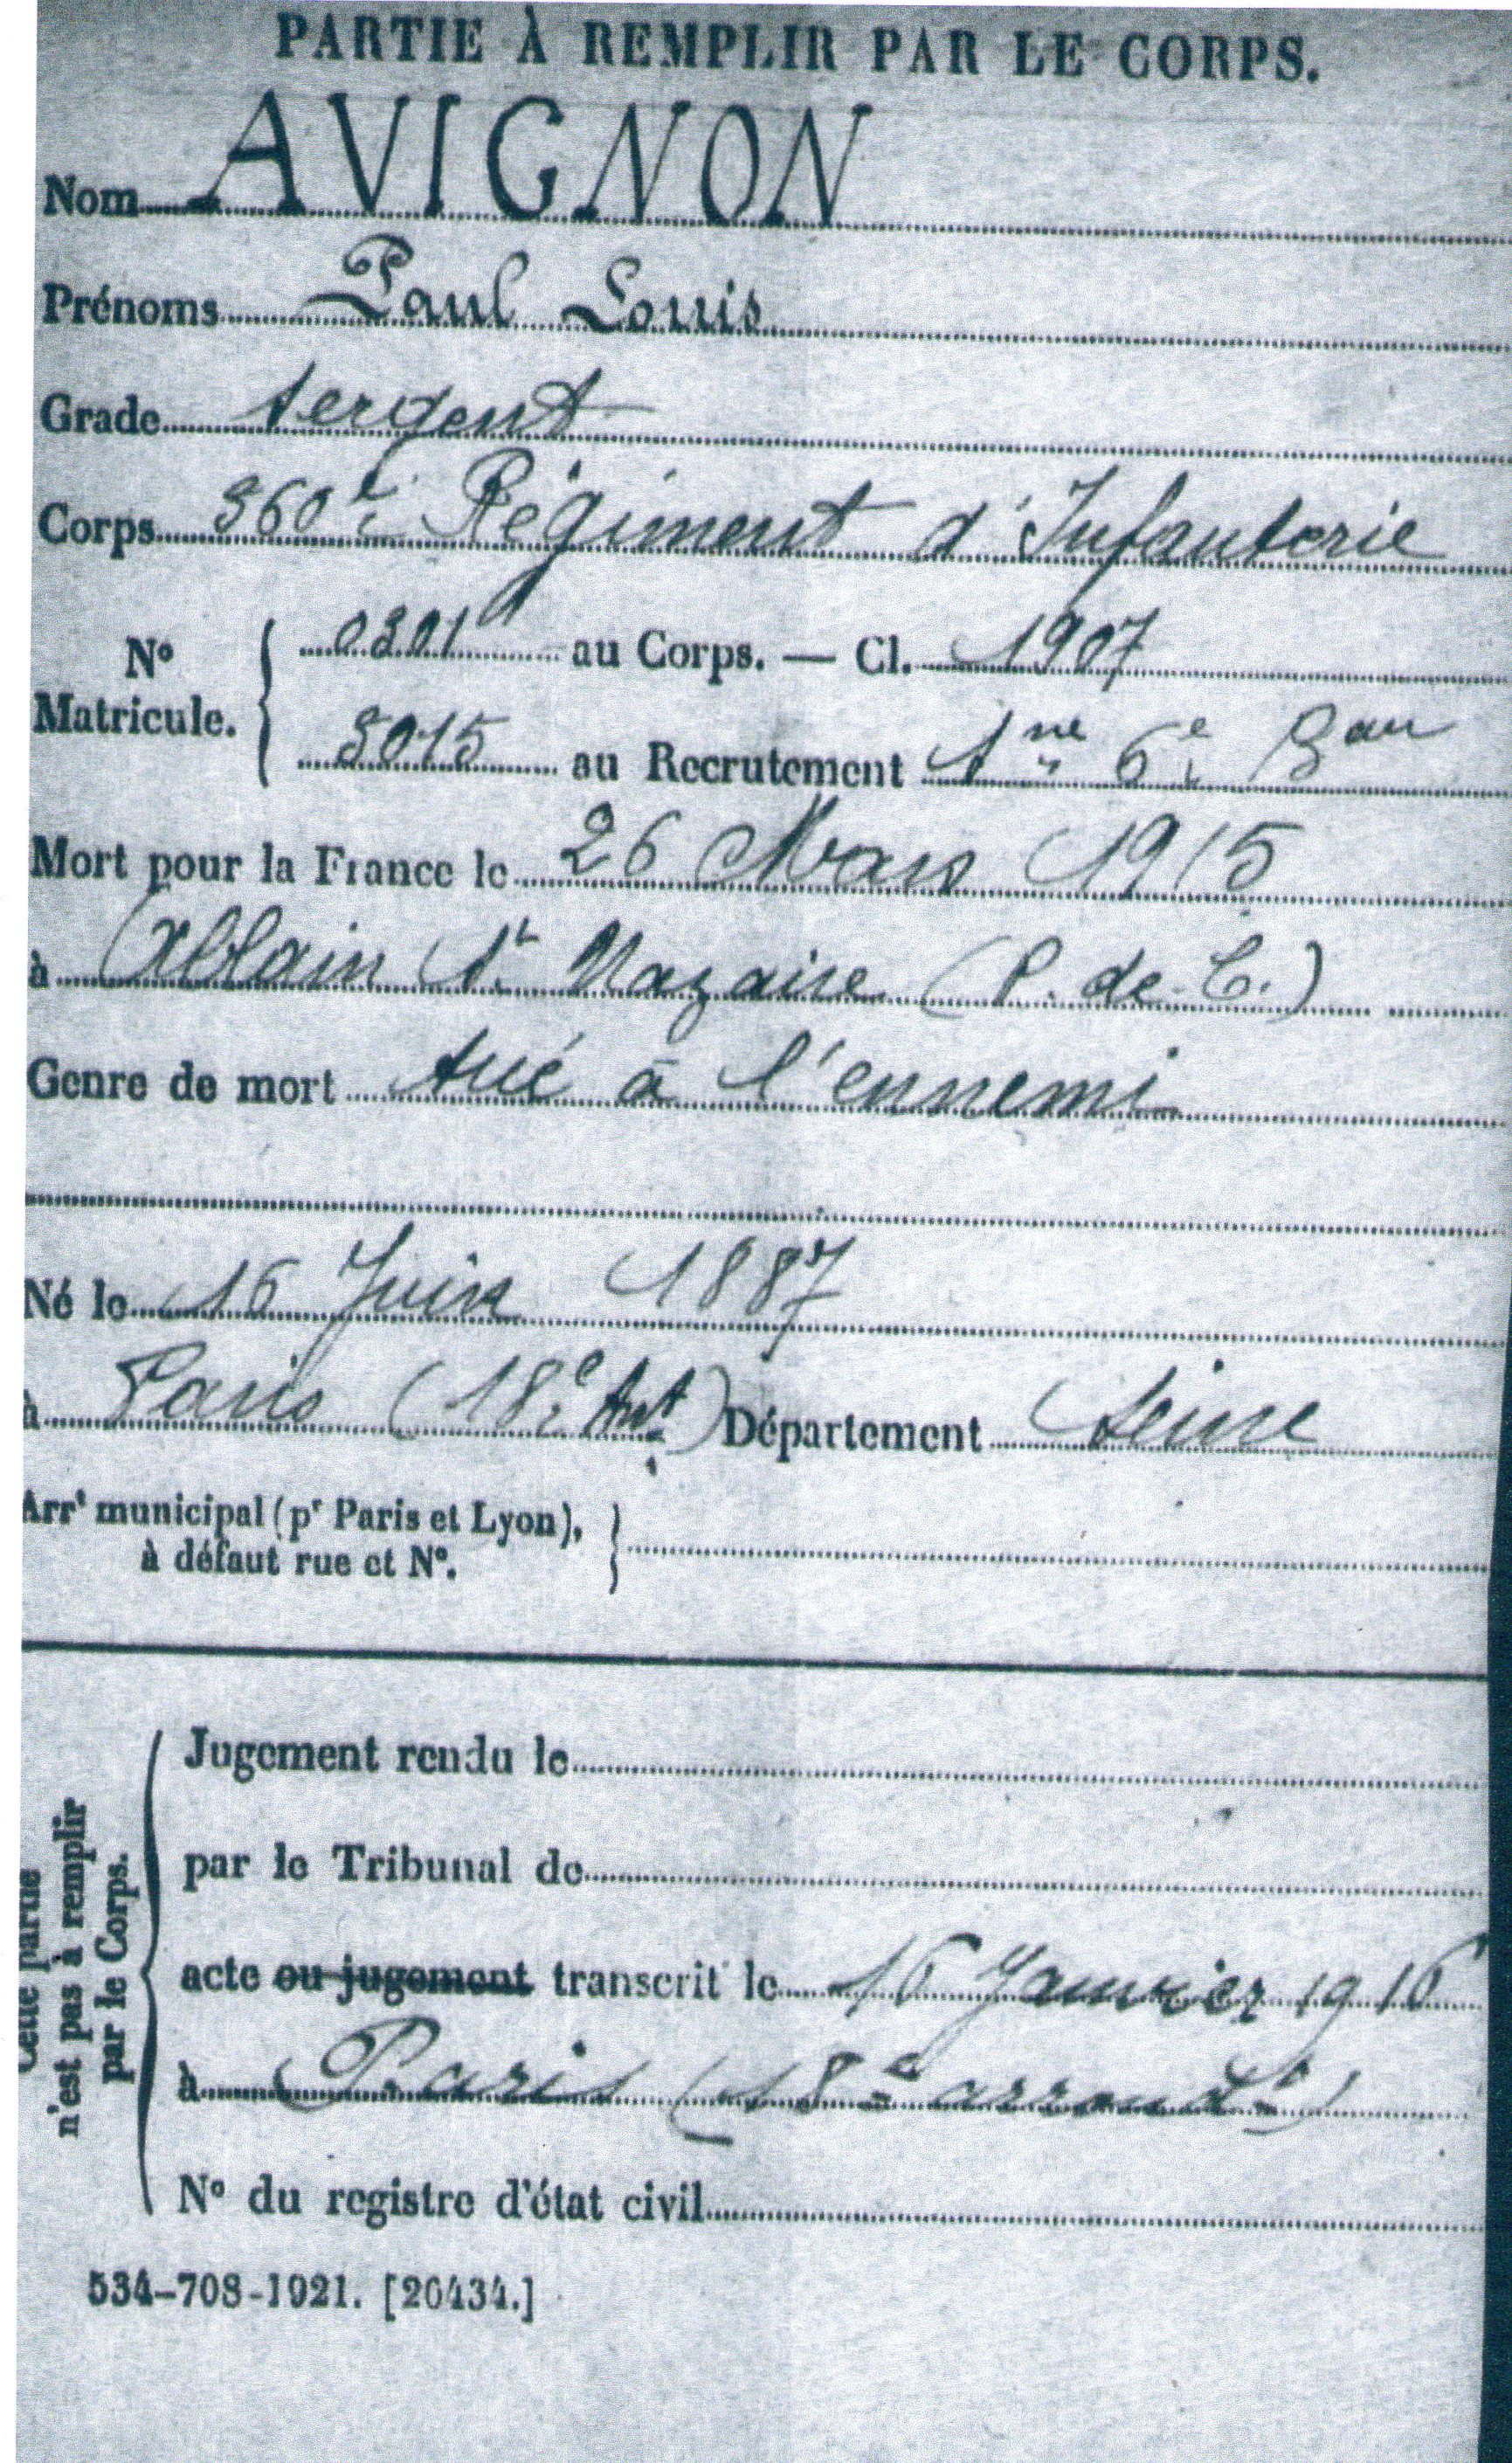 PARTIE À REMPLIR PAR LE CORPS.
Nom AVIGNON
Prénoms Paul Louis
Grade sergent
Corps 360e Régiment d'Infanterie
N° Matricule. 0301 au Corps. — Cl. 1907
3015 au Recrutement 6e Bau
Mort pour la France le 26 Mars 1915
à Ablain St Nazaire (P. de C.)
Genre de mort tué à l'ennemi
Né le 16 Juin 1887
à Paris (18e Art) Département Seine
Arrt municipal (pr Paris et Lyon),
à défaut rue et N°.
Cette partie
n'est pas à remplir
par le Corps.
Jugement rendu le
par le Tribunal de
acte ou jugement transcrit le 16 Janvier 1916
à Paris (18e arrondt)
N° du registre d'état civil
534-708-1921. [26434.]